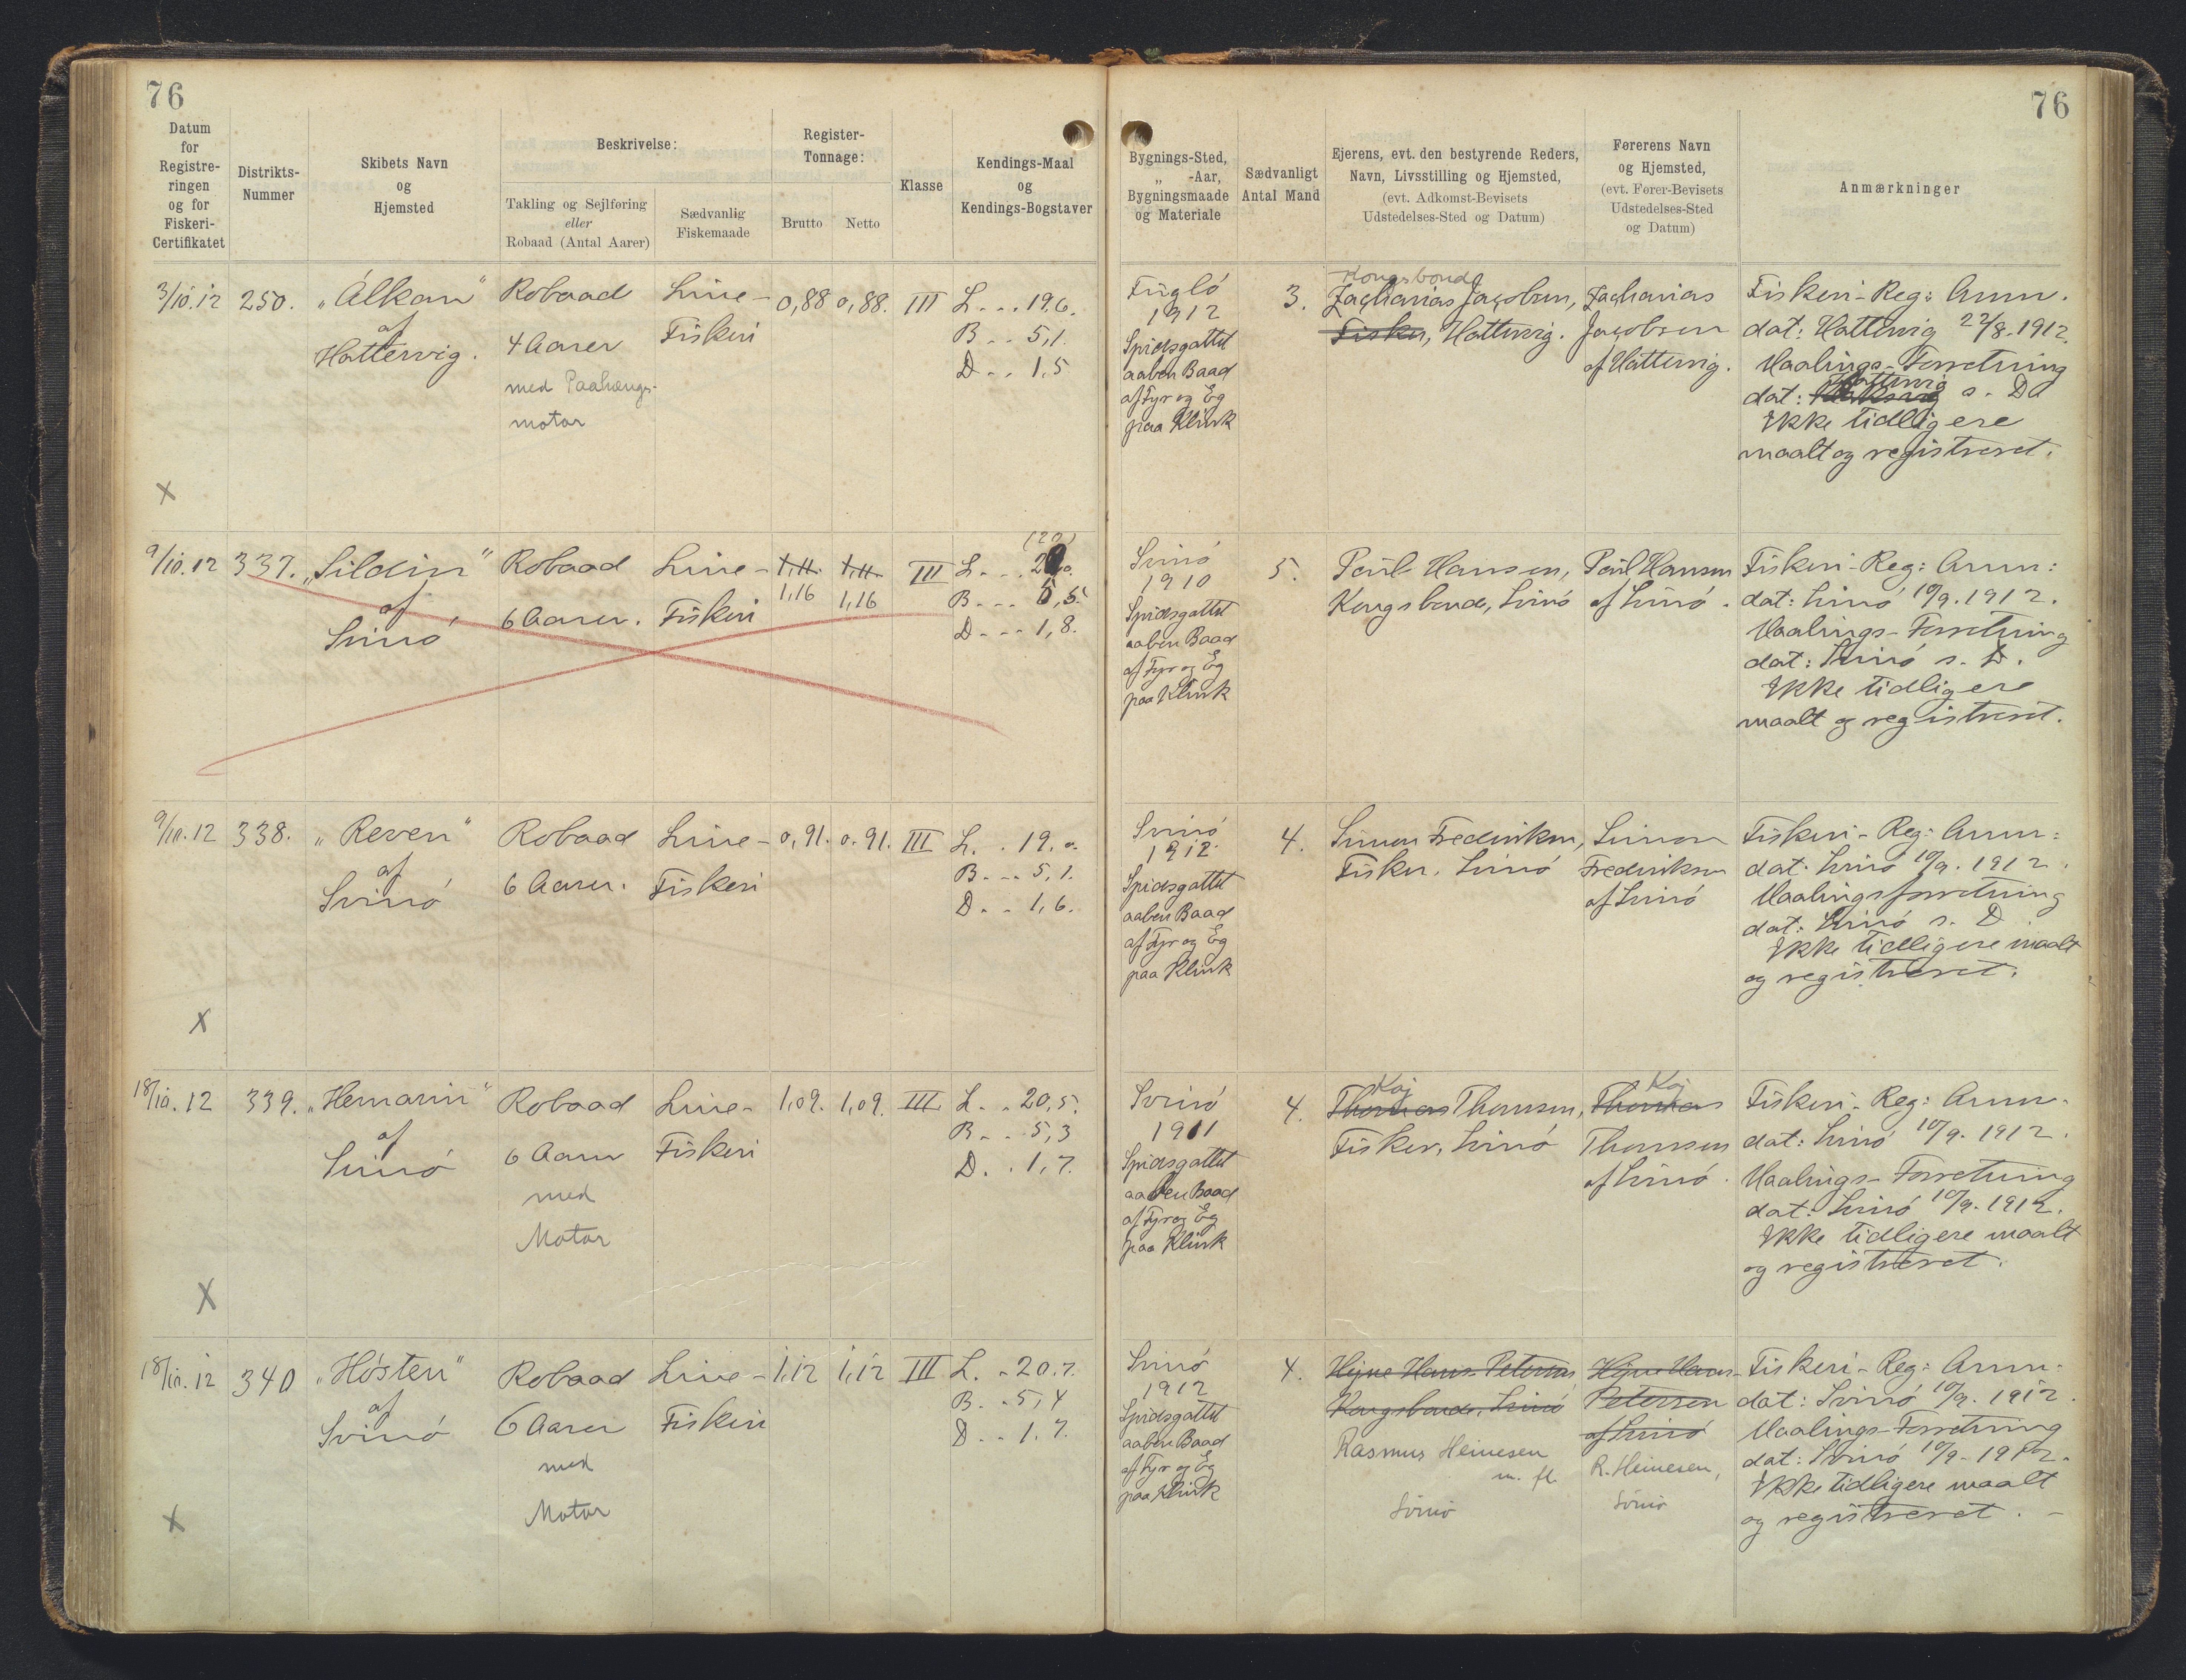 76
76
Datum
for
Registre-
ringen
og for
Fiskeri-
Certifikatet
Distrikts-
Nummer
Skibets Navn
og
Hjemsted
Beskrivelse:
Takling og Sejlføring
eller
Robaad (Antal Aarer)
Sædvanlig
Fiskemaade
Register-
Tonnage:
Brutto
Netto
Klasse
Kendings-Maal
og
Kendings-Bogstaver
Bygnings-Sted,
„ -Aar,
Bygningsmaade
og Materiale
Sædvanligt
Antal Mand
Ejerens, evt. den bestyrende Reders,
Navn, Livsstilling og Hjemsted,
(evt. Adkomst-Bevisets
Udstedelses-Sted og Datum)
Førerens Navn
og Hjemsted,
(evt. Fører-Bevisets
Udstedelses-Sted
og Datum)
Anmærkninger
3/10.12
250.
„Álkan"
af
Hattervig.
Robaad
4 Aarer
med Paahængs-
motor
Line-
Fiskeri
0,88
0,88.
III
L... 19,6.
B... 5,1.
D... 1,5
Fugló
1912
Spidsgattet
aaben Baad
af Fyr og Eg
paa Klink
3.
Kongsbonde
Zacharias Jacobsen,
Fisker, Hattervig.
Zacharias
Jacobsen
af Hattervig.
Fiskeri-Reg: Anm.
dat: Hattervig 22/8.1912.
Maalings-Forretning
Hattervig
dat: s. D
Ikke tidligere
maalt og registreret.
X
9/10.12
337.
„Sildin"
af
Svinó
Robaad
6 Aarer.
Line-
Fiskeri
1,11.
1,16
1,11.
1,16
III
L...
B... 5,5.
D... 1,8.
Svinó
1910
Spidsgattet
aaben Baad
af Fyr og Eg
paa Klink
5.
Poul Hansen,
Kongsbonde, Svinó
Poul Hansen
af Svinó.
Fiskeri-Reg: Anm:
dat: Svinó 10/9.1912.
Maalings-Forretning
dat: Svinó s. D.
Ikke tidligere
maalt og registreret.
9/10.12
338.
„Reven"
af
Svinó
Robaad
6 Aarer.
Line-
Fiskeri
0,91.
0.91.
III
L.. 19,0.
B... 5,1.
D... 1,6.
Svinó
1912.
Spidsgattet
aaben Baad
af Fyr og Eg
paa Klink
4.
Simon Frederiksen,
Fisker, Svinó
Simon
Frederiksen
af Svinó
Fiskeri-Reg: Anm:
dat: Svinó 10/9.1912.
Maalingsforretning
dat: Svinó s. D
Ikke tidligere maalt
og registreret.
X
18/10.12
339.
„Hemarin"
af
Svinó
Robaad
6 Aarer
med
Motor
Line-
Fiskeri
1,09.
1,09.
III
L.. 20,5.
B... 5,3
D... 1,7.
Svinó
1911
Spidsgattet
aaben Baad
af Fyr og Eg
paa Klink
4.
Kaj
Thomas Thomsen,
Fisker, Svinó
Kaj
Thomas
Thomsen
af Svinó.
Fiskeri-Reg: Anm.
dat: Svinó 10/9.1912.
Maalings-Forretning
dat: Svinó 10/9.1912.
Ikke tidligere maalt
og registreret.
X
18/10.12
340
„Hósten"
af
Svinó
Robaad
6 Aarer
med
Motor
Line-
Fiskeri
1,12
1,12
III
L.. 20.7.
B... 5,4
D... 1.7.
Svinó
1912
Spidsgattet
aaben Baad
af Fyr og Eg
paa Klink
4.
Hejne Hans Petersen
Kongsbonde, Svinó
Rasmus Heinesen
m. fl.
Svinø
Hejne Hans
Petersen
af Svinó
R. Heinesen,
Svinø
Fiskeri-Reg: Anm:
dat: Svinó 10/9.1912.
Maalings-Forretning
dat: Svinó 10/9-1912.
Ikke tidligere maalt
og registreret.
X